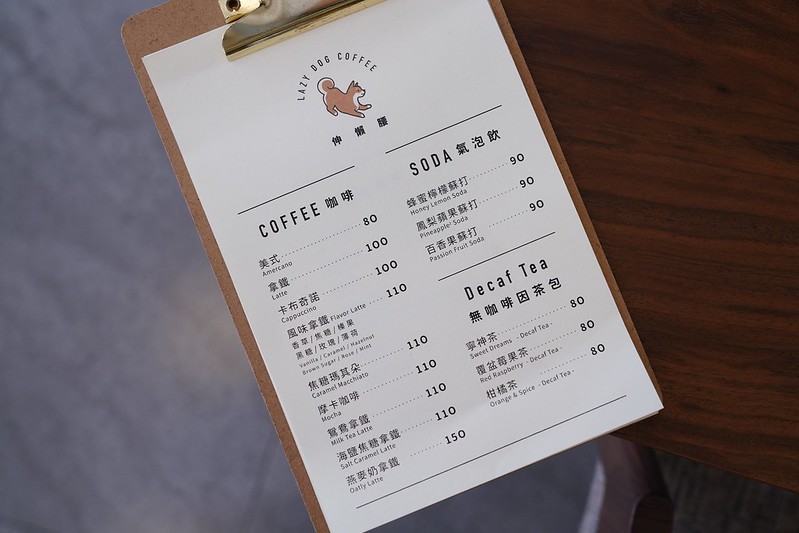 LAZY DOG COFFEE
伸懶腰
COFFEE 咖啡
美式 80
Amercano
拿鐵 100
Latte
卡布奇諾 100
Cappuccino
風味拿鐵 Flavor Latte 110
香草 / 焦糖 / 榛果
黑糖 / 玫瑰 / 薄荷
Vanilla / Caramel / Hazelnut
Brown Sugar / Rose / Mint
焦糖瑪其朵 110
Caramel Macchiato
摩卡咖啡 110
Mocha
鴛鴦拿鐵 110
Milk Tea Latte
海鹽焦糖拿鐵 110
Salt Caramel Latte
燕麥奶拿鐵 150
Oatly Latte
SODA 氣泡飲
蜂蜜檸檬蘇打 90
Honey Lemon Soda
鳳梨蘋果蘇打 90
Pineapple² Soda
百香果蘇打 90
Passion Fruit Soda
Decaf Tea
無咖啡因茶包
寧神茶 80
Sweet Dreams - Decaf Tea -
覆盆莓果茶 80
Red Raspberry - Decaf Tea -
柑橘茶 80
Orange & Spice - Decaf Tea -